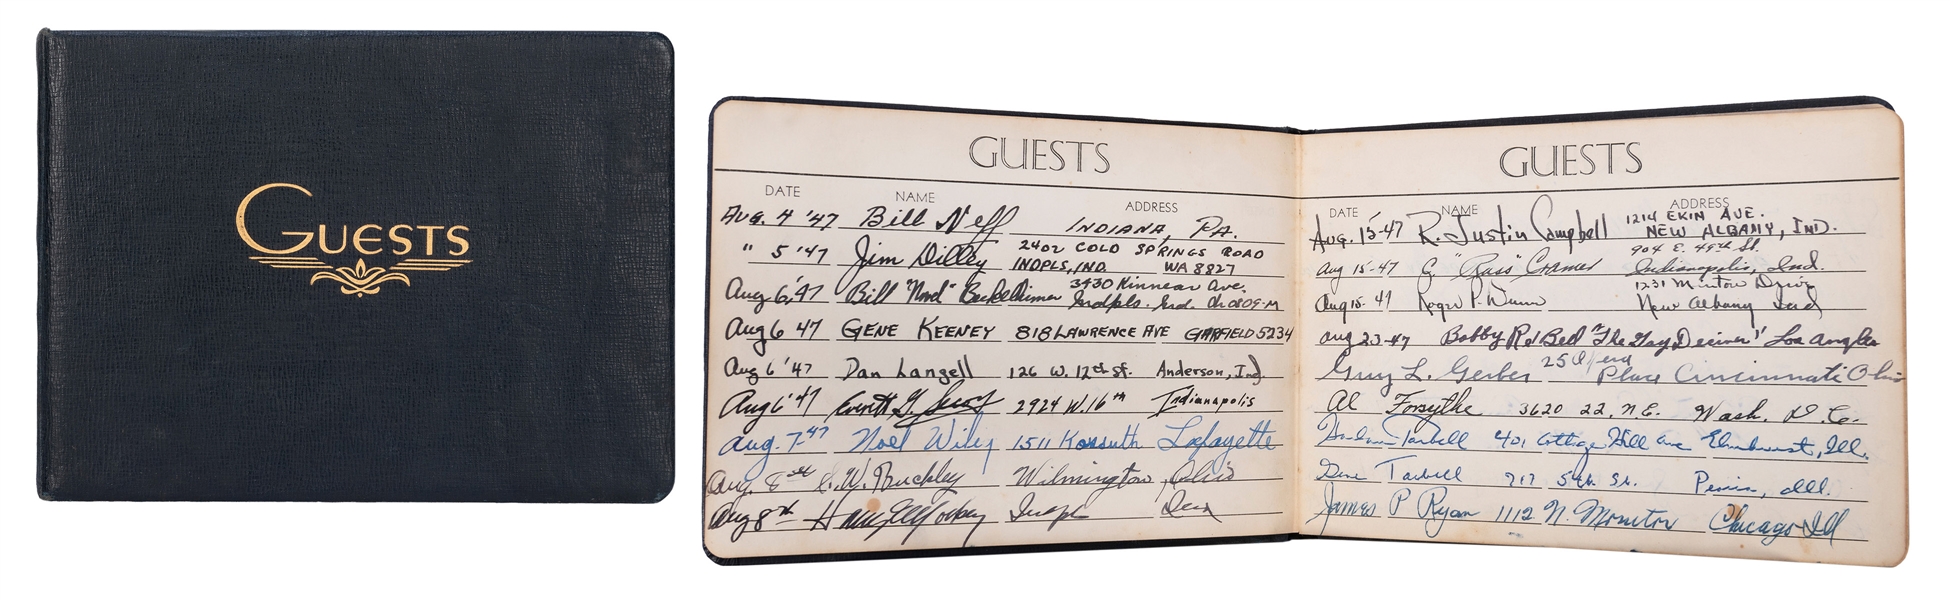 GUESTS
GUESTS
DATE NAME ADDRESS
Aug. 4 '47 Bill Neff INDIANA, PA.
" 5 '47 Jim Dilley 2402 COLD SPRINGS ROAD
INDPLS, IND. WA 8827
Aug 6, '47 Bill "Novel" 3430 Kinnear Ave.
Indpls. Ind. Ch 0809-M
Aug 6 '47 GENE KEENEY 818 LAWRENCE AVE GARFIELD 5234
Aug 6 '47 Dan Langell 126 W. 12th St. Anderson, Ind
Aug 6 '47 Everett G. 2924 W. 16th Indianapolis
Aug. 7-47 Noel Wiley 1511 Kossuth Lafayette
Aug. 8th W. Buckley Wilmington, Ohio
Aug 8th
GUESTS
DATE NAME ADDRESS
Aug. 15-47 R. Justin Campbell 1214 EKIN AVE.
NEW ALBANY, IND.
Aug 15-47 G. "Russ" Cramer 904 E. 49th St.
Indianapolis, Ind.
Aug 15-47 Roger P. 1231 Minton Drive
New Albany Ind
Aug 23-47 Bobby Re Bell "The Gay Deceiver" Los Angles
L. Gerber 25 Opera Place Cincinnati Ohio
Al Forsythe 3620 22, N.E. Wash. D.C.
Tarbell 401 Cottage Hill Ave Elmhurst, Ill.
Gene Tarbell 717 5th St. Peoria, Ill.
James P Ryan 1112 N. Monitor Chicago Ill